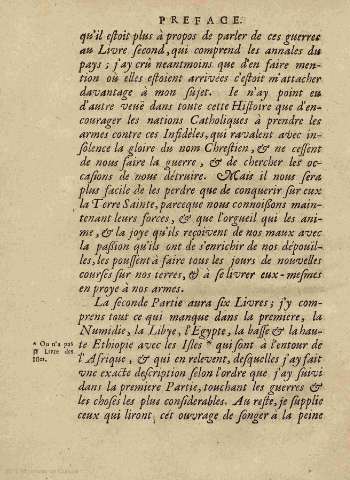 PREFACE.
qu'il estoit plus à propos de parler de ces guerres
au Livre second, qui comprend les annales du
pays ; j'ay crû neantmoins que d'en faire men-
tion où elles estoient arrivées c'estoit m'attacher
davantage à mon sujet. Ie n'ay point eu
d'autre veuë dans toute cette Histoire que d'en-
courager les nations Catholiques à prendre les
armes contre ces Infidéles, qui ravalent avec in-
solence la gloire du nom Chrestien, & ne cessent
de nous faire la guerre, & de chercher les oc-
casions de nous détruire. Mais il nous sera
plus facile de les perdre que de conquerir sur eux
la Terre Sainte, parceque nous connoissons main-
tenant leurs forces, & que l'orgueil qui les ani-
me, & la joye qu'ils reçoivent de nos maux avec
la passion qu'ils ont de s'enrichir de nos dépouil-
les, les poussent à faire tous les jours de nouvelles
courses sur nos terres, & à se livrer eux-mesmes
en proye à nos armes.
La seconde Partie aura six Livres ; j'y com-
prens tout ce qui manque dans la premiere, la
Numidie, la Libye, l'Egypte, la basse & la hau-
te Ethiopie avec les Isles * qui sont à l'entour de
l'Afrique, & qui en relevent, desquelles j'ay fait
vne exacte description selon l'ordre que j'ay suivi
dans la premiere Partie, touchant les guerres &
les choses les plus considerables. Au reste, je supplie
ceux qui liront cét ouvrage de songer à la peine
* On n'a pas
Livre des
Isles.